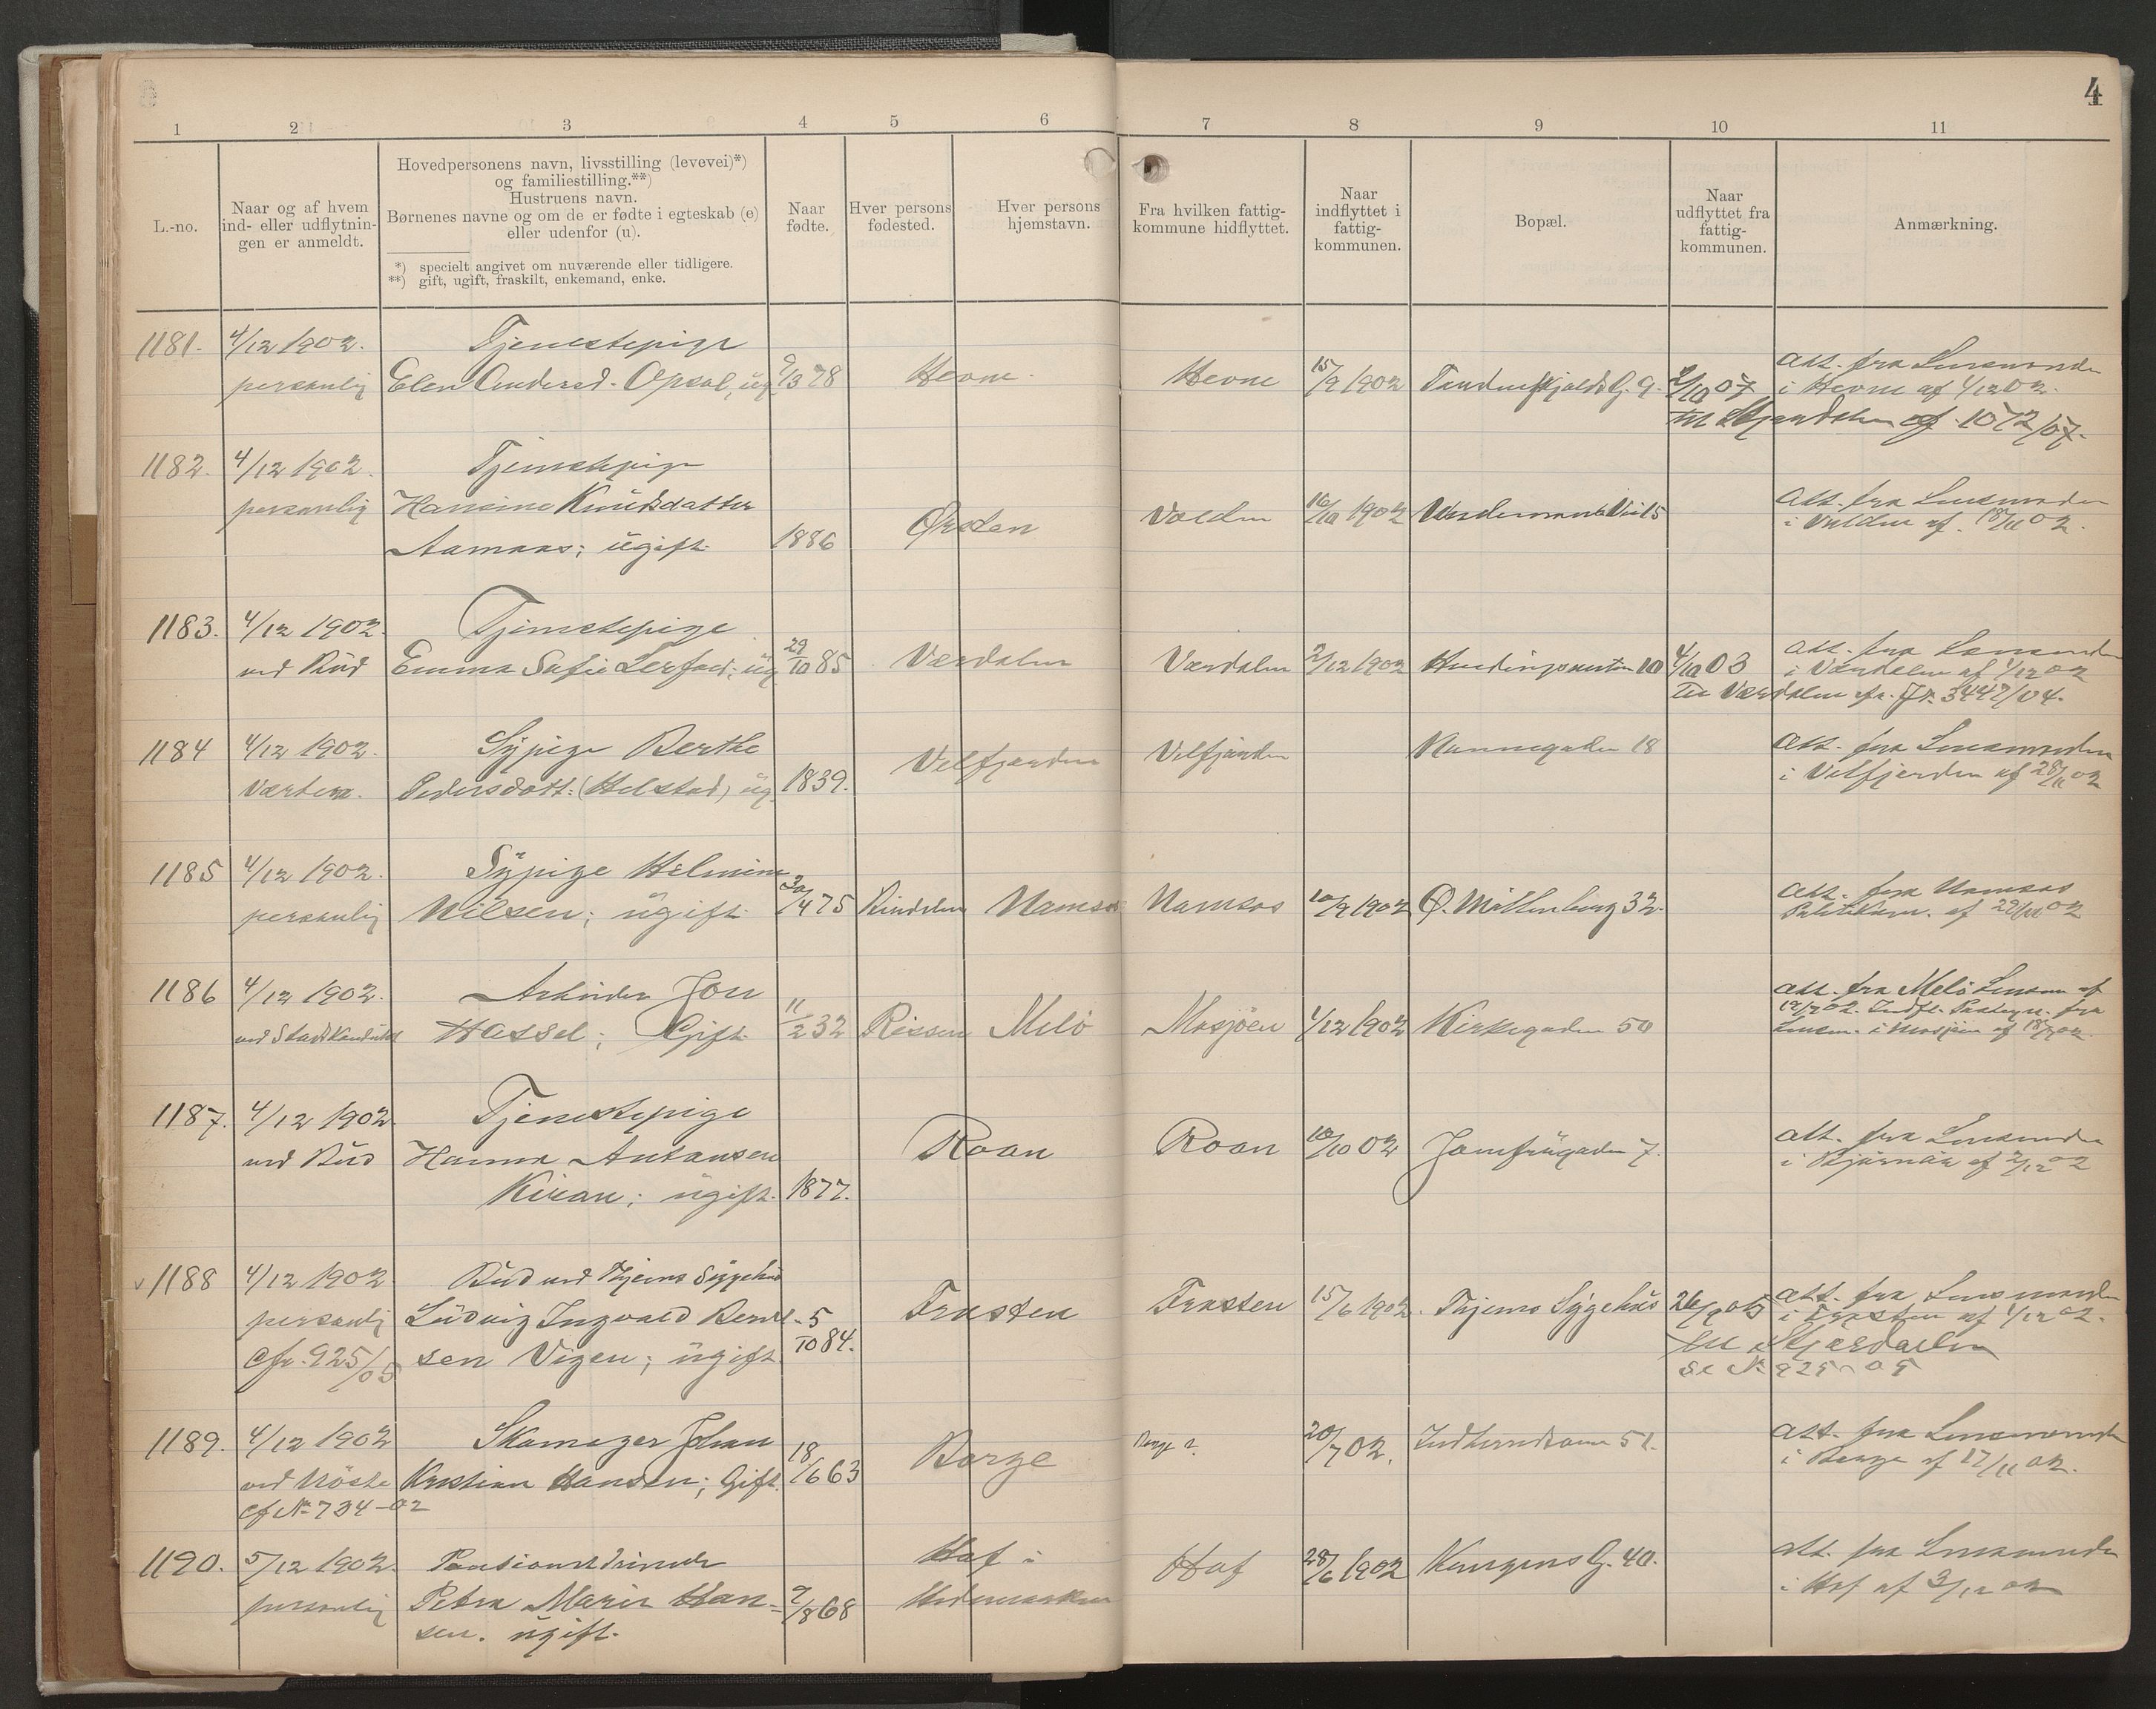 4
1 2 3 4 5 6 7 8 9 10 11
L.-no.
Naar og af hvem
ind- eller udflytnin-
gen er anmeldt.
Hovedpersonens navn, livsstilling (levevei)*)
og familiestilling.**)
Hustruens navn.
Børnenes navne og om de er fødte i egteskab (e)
eller udenfor (u).
*) specielt angivet om nuværende eller tidligere.
**) gift, ugift, fraskilt, enkemand, enke.
Naar
fødte.
Hver persons
fødested.
Hver persons
hjemstavn.
Fra hvilken fattig-
kommune hidflyttet.
Naar
indflyttet i
fattig-
kommunen.
Bopæl.
Naar
udflyttet fra
fattig-
kommunen.
Anmærkning.
1181. 4/12 1902. Tjenestepige att. fra Lensmanden
personlig Elen Andersd. Opsal, ug. 9/3 78 Hevne Hevne 15/9 1902 Tordenskjolds G. 9. 2/10 07 i Hevne af 4/12 02.
til Skjerdalen cf. 1072/07.
1182. 4/12 1902. Tjenestepige att. fra Lensmanden
personlig Hansine Knudsdatter Volden 16/10 1902 Veien 15 i Volden af. 18/11 02.
Aamaas; ugift. 1886 Ørsten
1183. 4/12 1902. Tjenestepige att. fra Lensmanden
ved Bud Emma Sofie Lerfad; ug. 29/10 85 Værdalen Værdalen 2/12 1902 10 4/10 03 i Værdalen af 1/12 02
Til Værdalen cfr. Jr. 3447/04.
1184 4/12 1902. Sypige Berthe Velfjorden Velfjorden Nannegaden 18 att. fra Lensmanden
Værten. Pedersdatt: (Helstad) ug. 1839. i Velfjorden af 28/11 02
1185 4/12 1902. Sypige Helmine att. fra Namsos
personlig Nilsen; ugift. 30/4 75 Rindalen Namsos Namsos 10/9 1902 Ø. Møllenberg 32. af 29/11 02
1186 4/12 1902. Arbeider Jon att. fra Melö Lensm. af
Hassel; Gift. 11/2 32 Rissen Melö Mosjöen 1/12 1902 Kirkegaden 50 Lensm. i Mosjöen af 18/9 02.
1187. 4/12 1902. Tjenestepige att. fra Lensmanden
ved Bud Hanna Antonsen Roan Roan 10/10 02 Jomfrugaden 7. i Bjørnør af 2/12 02
Kiran; ugift. 1877.
v 1188 4/12 1902 Bud ved Thjems Sygehus att. fra Lensmanden
personlig Ludvig Ingvald Bernt- 5/10 84. Frosten Frosten 15/6 1902. Thjems Sygehus 26/9 05 i Frosten af 4/12 02.
cfr. 925/05 sen Vigen; ugift. til Skjerdalen
se No 925 - 05
1189. 4/12 1902 Skomager Johan Borge Borge? 20/7 02. Indherredsveien 51. att. fra Lensmanden
ved Nöste Kristian Hansen; Gift. 18/6 63 i Borge af 17/11 02.
cf No 734-02
1190. 5/12 1902. Hof i Hof 28/6 1902 Kongens G. 40. att. fra Lensmanden
personlig Petra Marie Han- 9/8 68 Hedemarken i Hof af 3/12 02
sen. ugift.